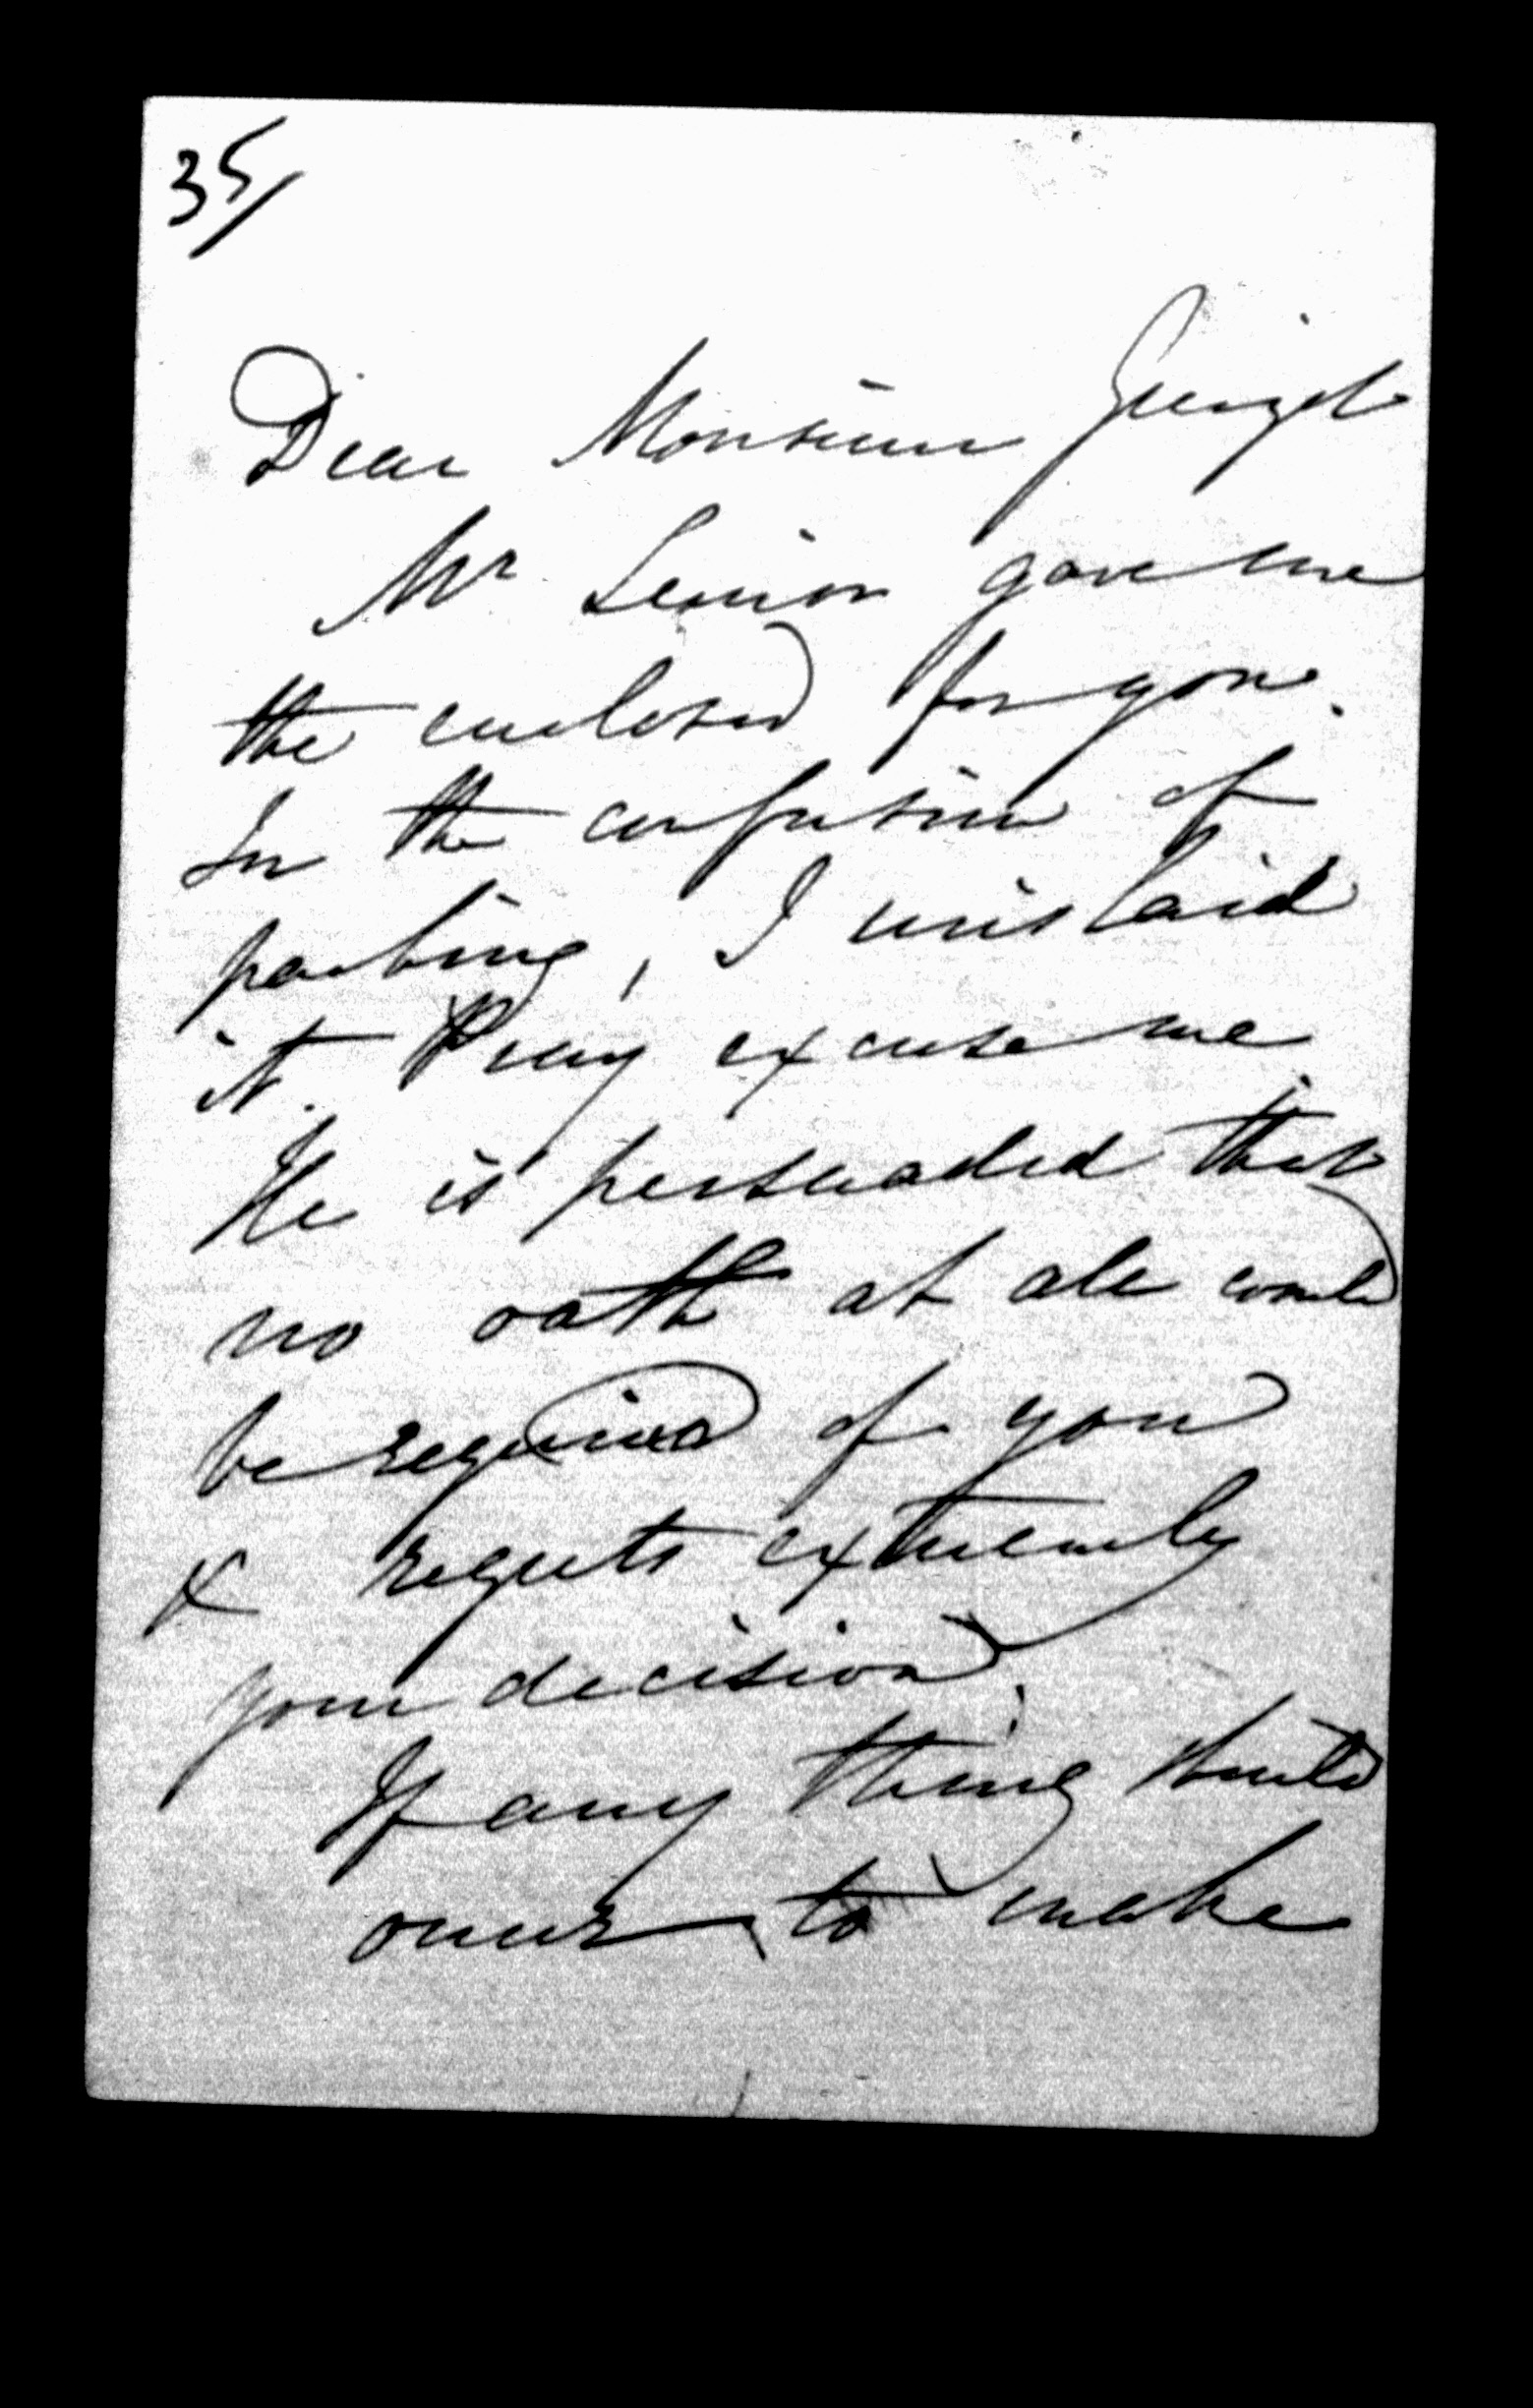 35/
Dear Monsieur Guizot
Mr Senior gave me
the enclosed for you.
In the confusion of
parting, I mislaid
it. Pray excuse me
He is persuaded that
no oath at all could
be required of you
& regrets extremely
your decision.
If any thing should
occur to make